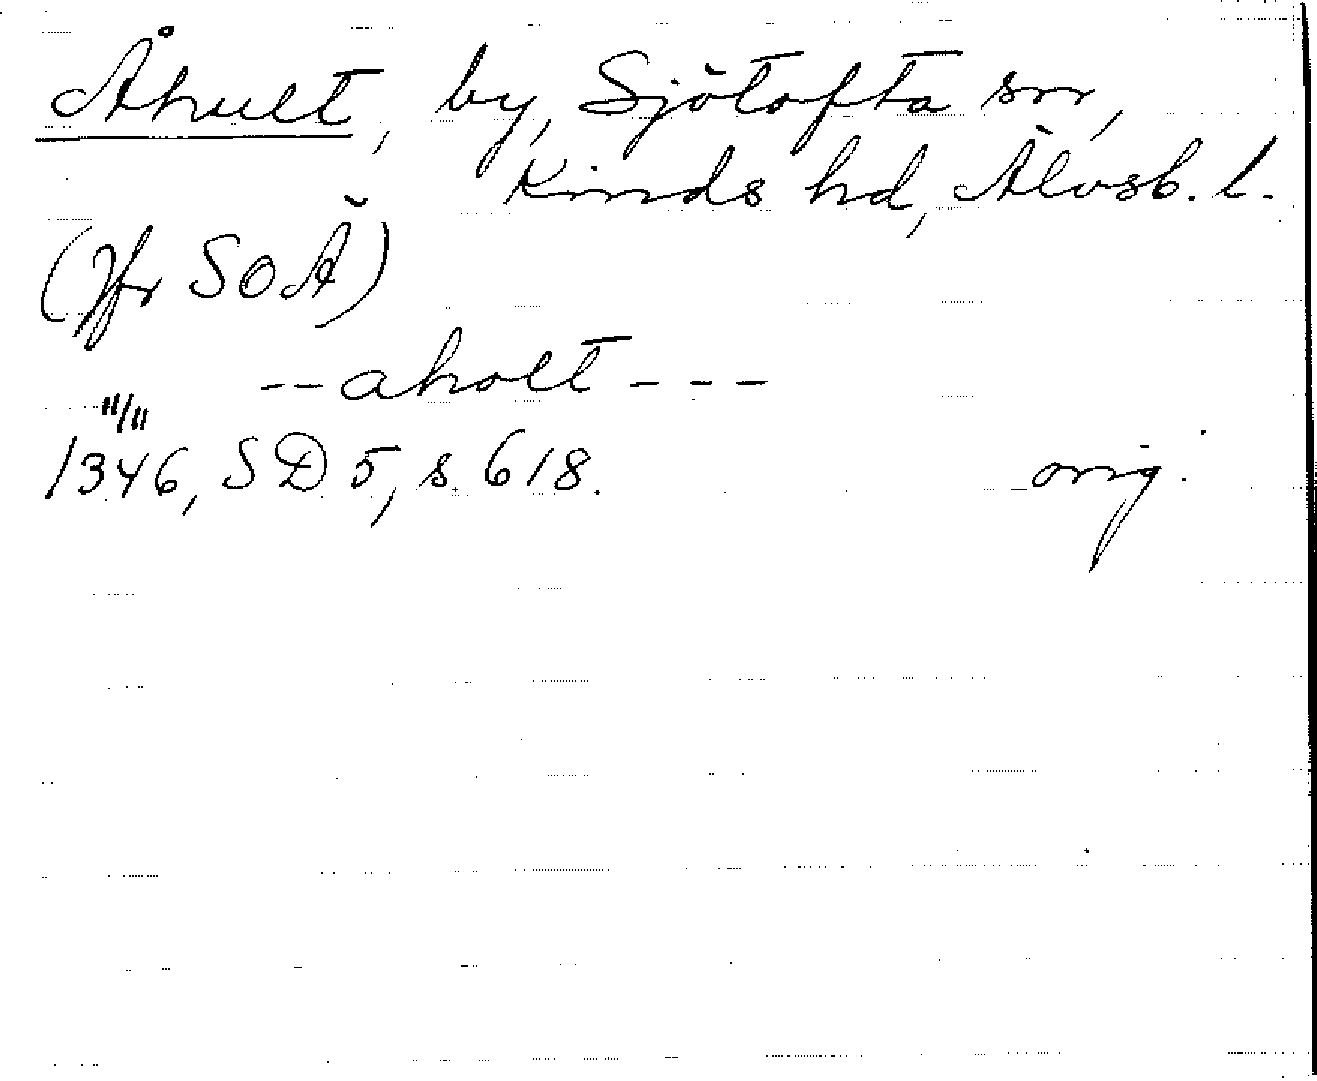 Åhult, by, Sjötofta sn,
Kinds hd, Älvsb. l.
(Jfr SOÄ)
--aholt---
11/11
1346, SD 5, s. 618. orig.